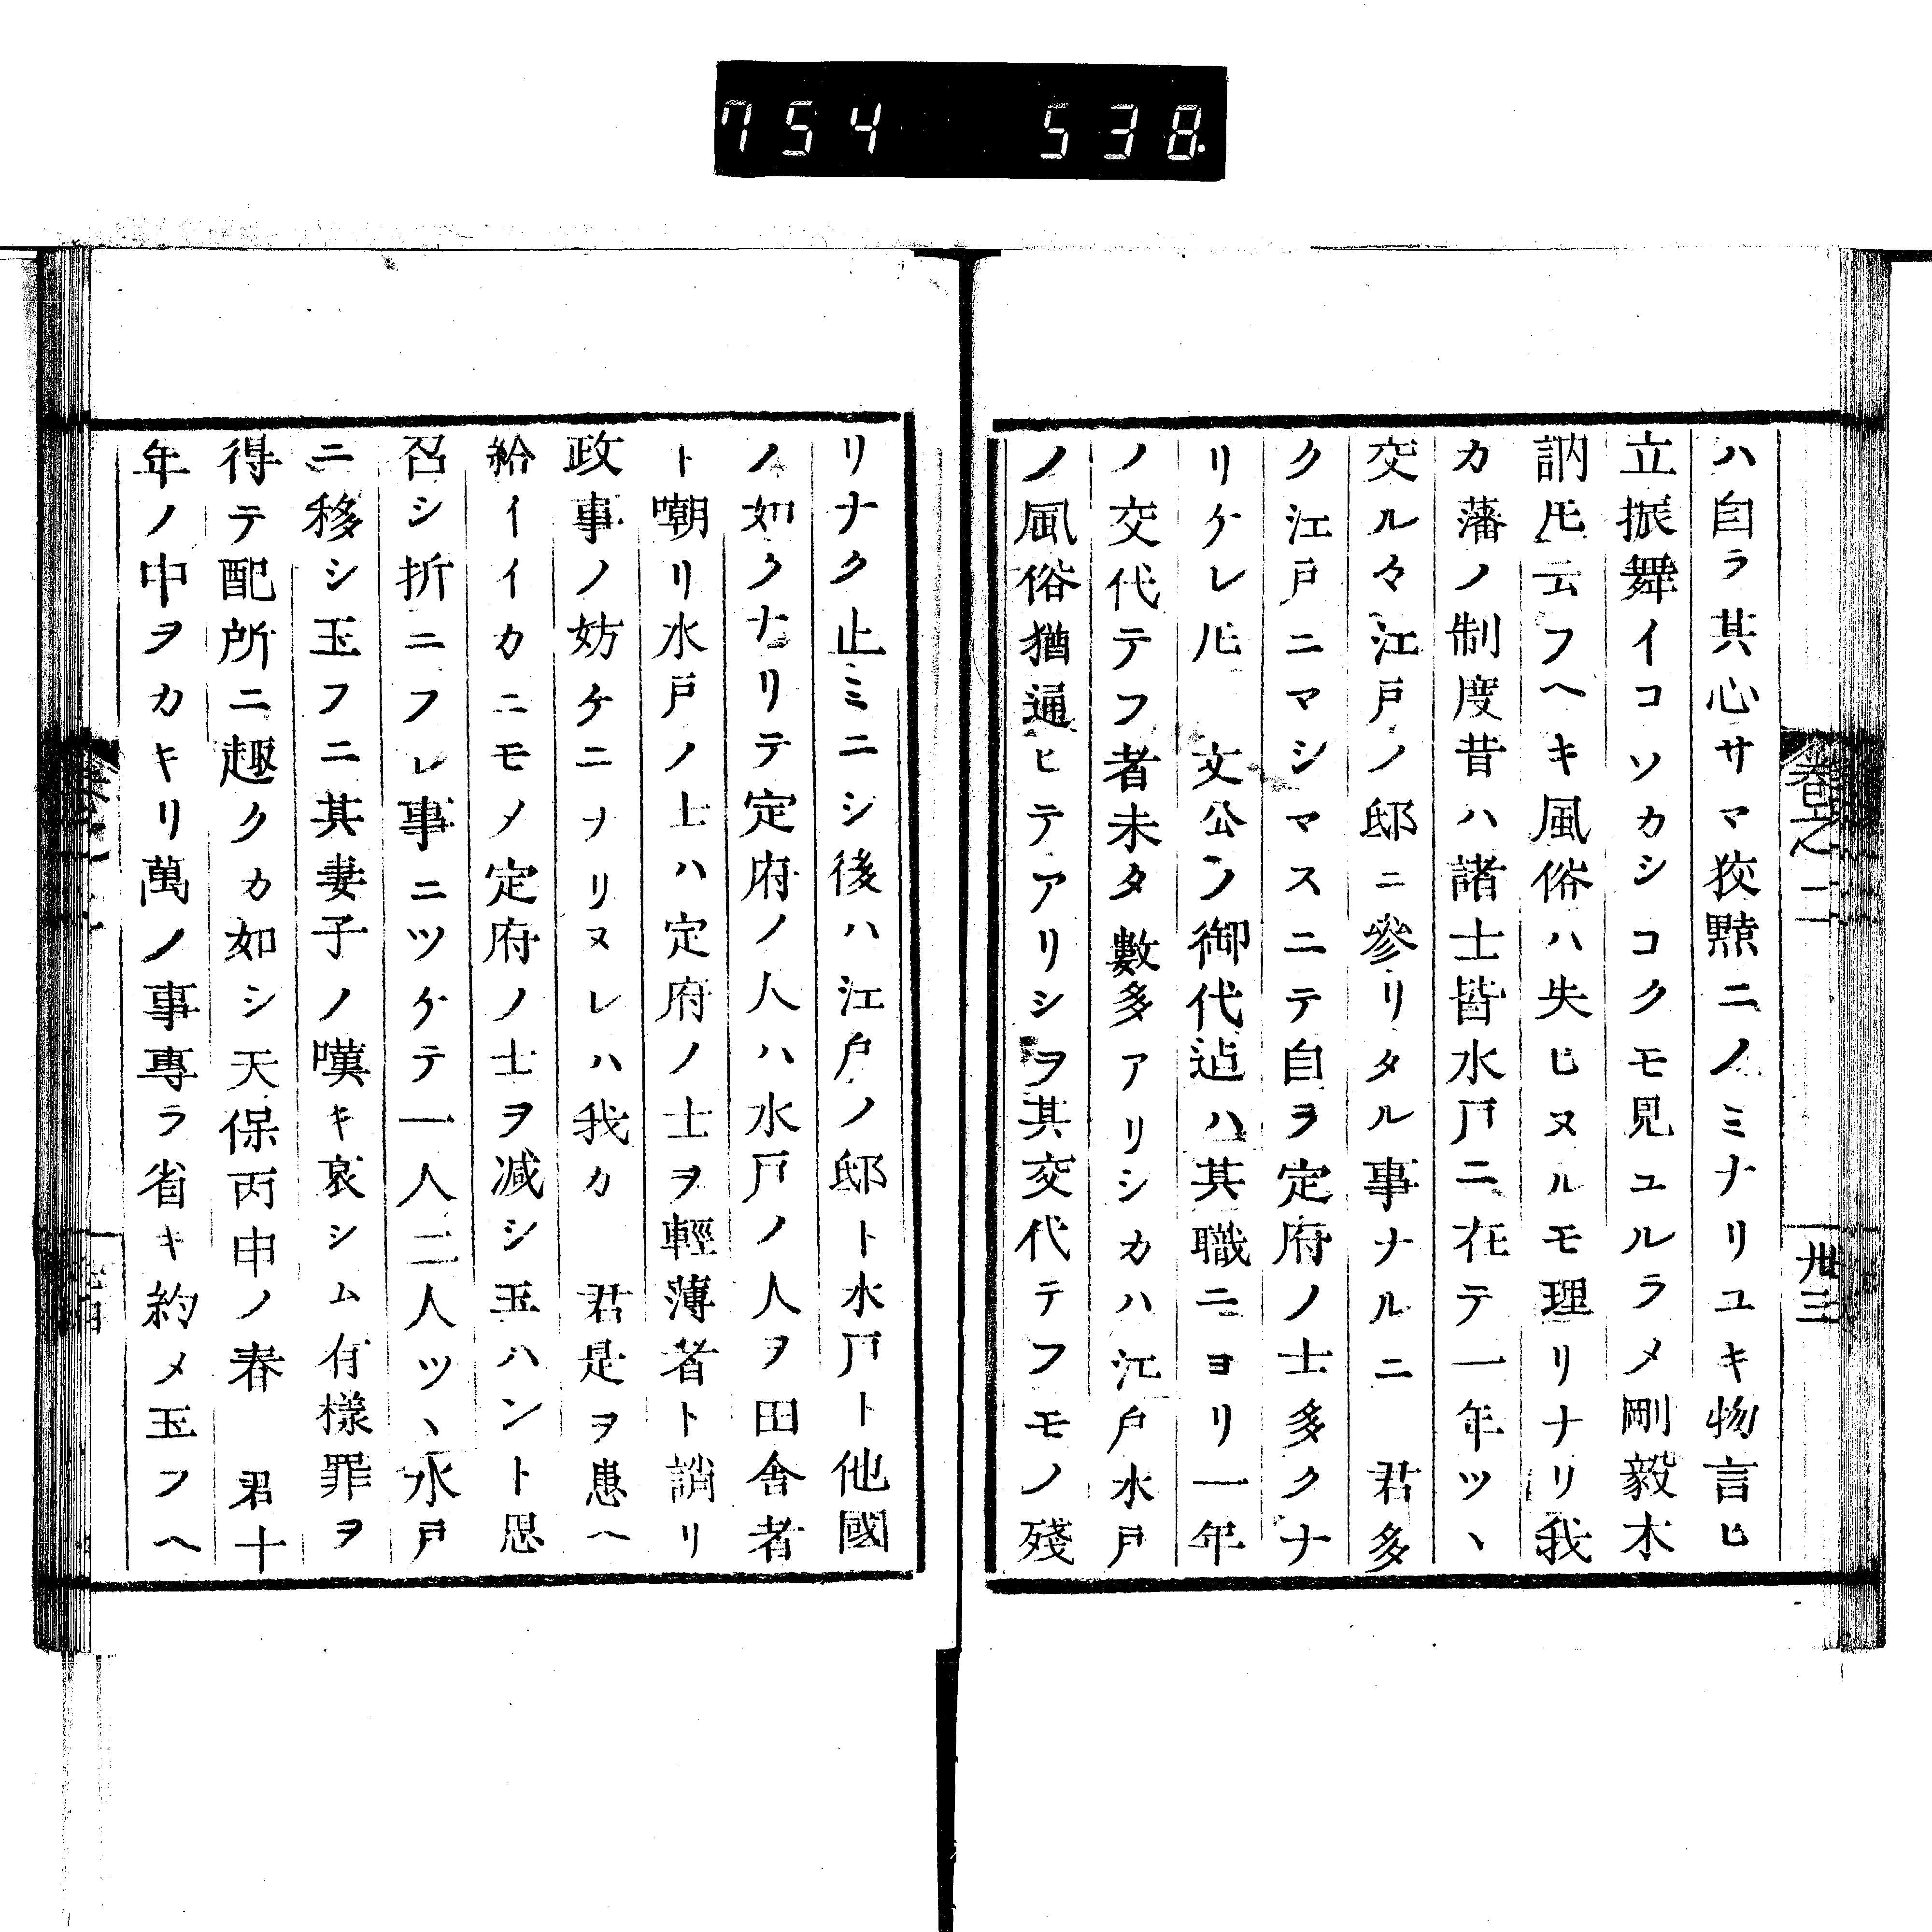 754 538
ハ自ラ其心サマ狡黠ニノミナリユキ物言ヒ
立振舞イコソカシコクモ見ユルラメ剛毅木
訥𪜈云フヘキ風俗ハ失ヒヌルモ理リナリ我
カ藩ノ制度昔ハ諸士皆水戸ニ在テ一年ツヽ
交ル々江戸ノ邸ニ參リタル事ナルニ 君多
ク江戸ニマシマスニテ自ラ定府ノ士多クナ
リケレ𪜈 文公ノ御代迠ハ其職ニヨリ一年
ノ交代テフ者未タ數多アリシカハ江戸水戸
ノ風俗猶通ヒテアリシヲ其交代テフモノ殘
卷之二
卅三
リナク止ミニシ後ハ江戸ノ邸ト水戸ト他國
ノ如クナリテ定府ノ人ハ水戸ノ人ヲ田舍者
ト嘲リ水戸ノ士ハ定府ノ士ヲ輕薄者ト誚リ
政事ノ妨ケニナリヌレハ我カ 君是ヲ患ヘ
給イイカニモメ定府ノ士ヲ减シ玉ハント思
召シ折ニフレ事ニツケテ一人二人ツヽ水戸
ニ移シ玉フニ其妻子ノ嘆キ哀シム有樣罪ヲ
得テ配所ニ趣クカ如シ天保丙申ノ春 君十
年ノ中ヲカキリ萬ノ事專ラ省キ約メ玉フヘ